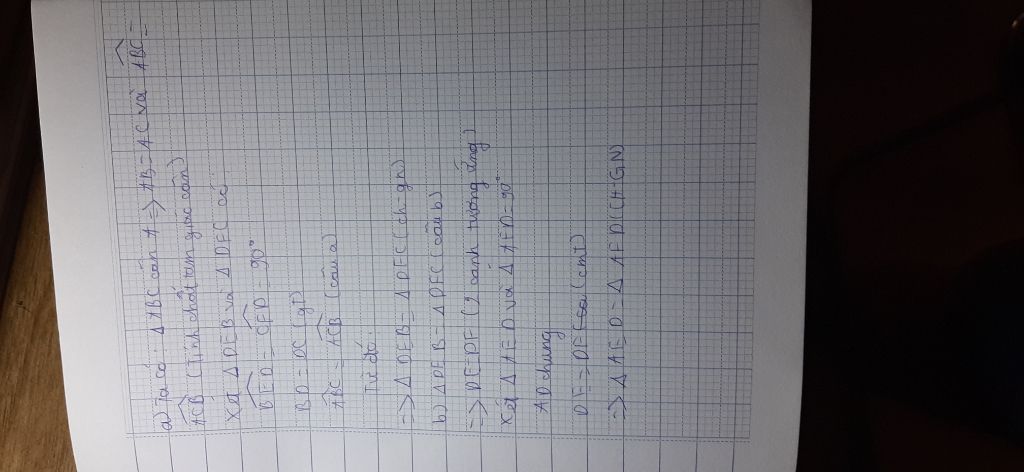 a) Ta có: ΔABC cân A => AB = AC và ABC =
ACB (Tính chất tam giác cân)
Xét ΔDEB và ΔDFC có
BED = CFD = 90°
BD = DC (gt)
ABC = ACB (câu a)
Từ đó:
=> ΔDEB = ΔDFC (ch-gn)
b) ΔDEB = ΔDFC (câu b)
=> DE = DF (2 cạnh tương ứng)
Xét ΔAED và ΔAFD = 90°
AD chung
DE = DF (cmt)
=> ΔAED = ΔAFD (CH-GN)